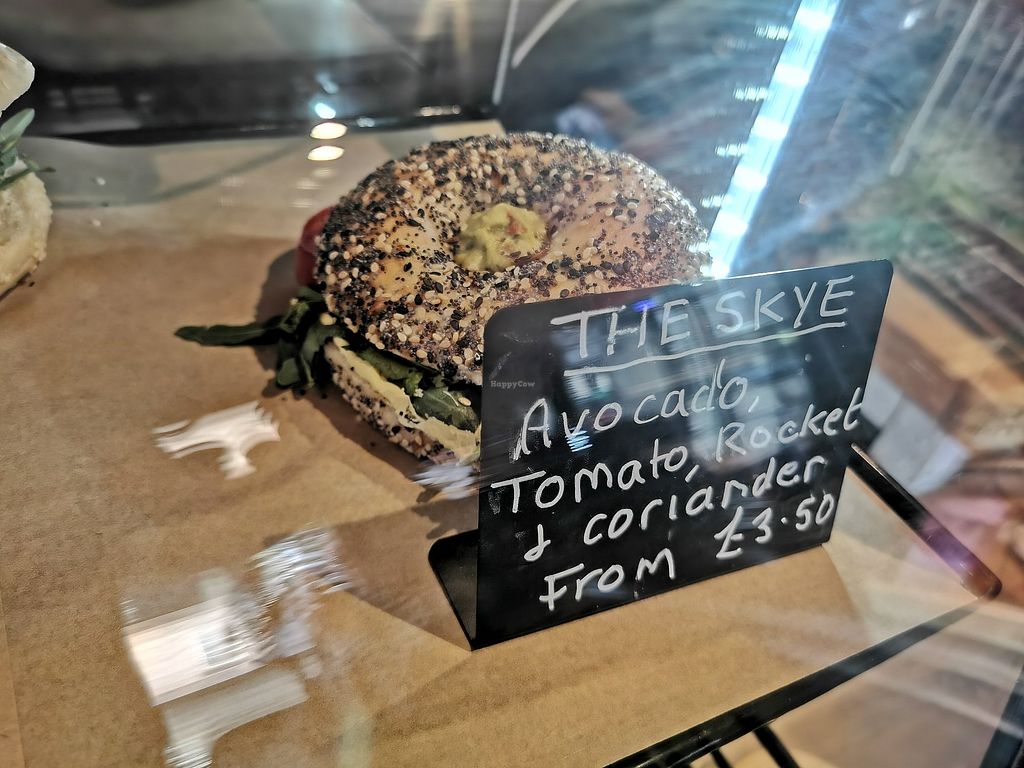 THE SKYE
Avocado,
Tomato, Rocket
& coriander
From £3.50
HappyCow